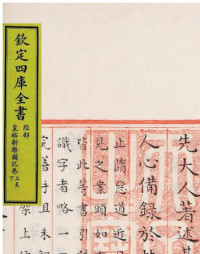 欽定四庫全書
經部
皇祐新樂圖記卷上至下
先大人著述其
人心備錄於
止蹈忠道近
見之業頭如
皆此等書引
識字者略一
完善手且未
架上